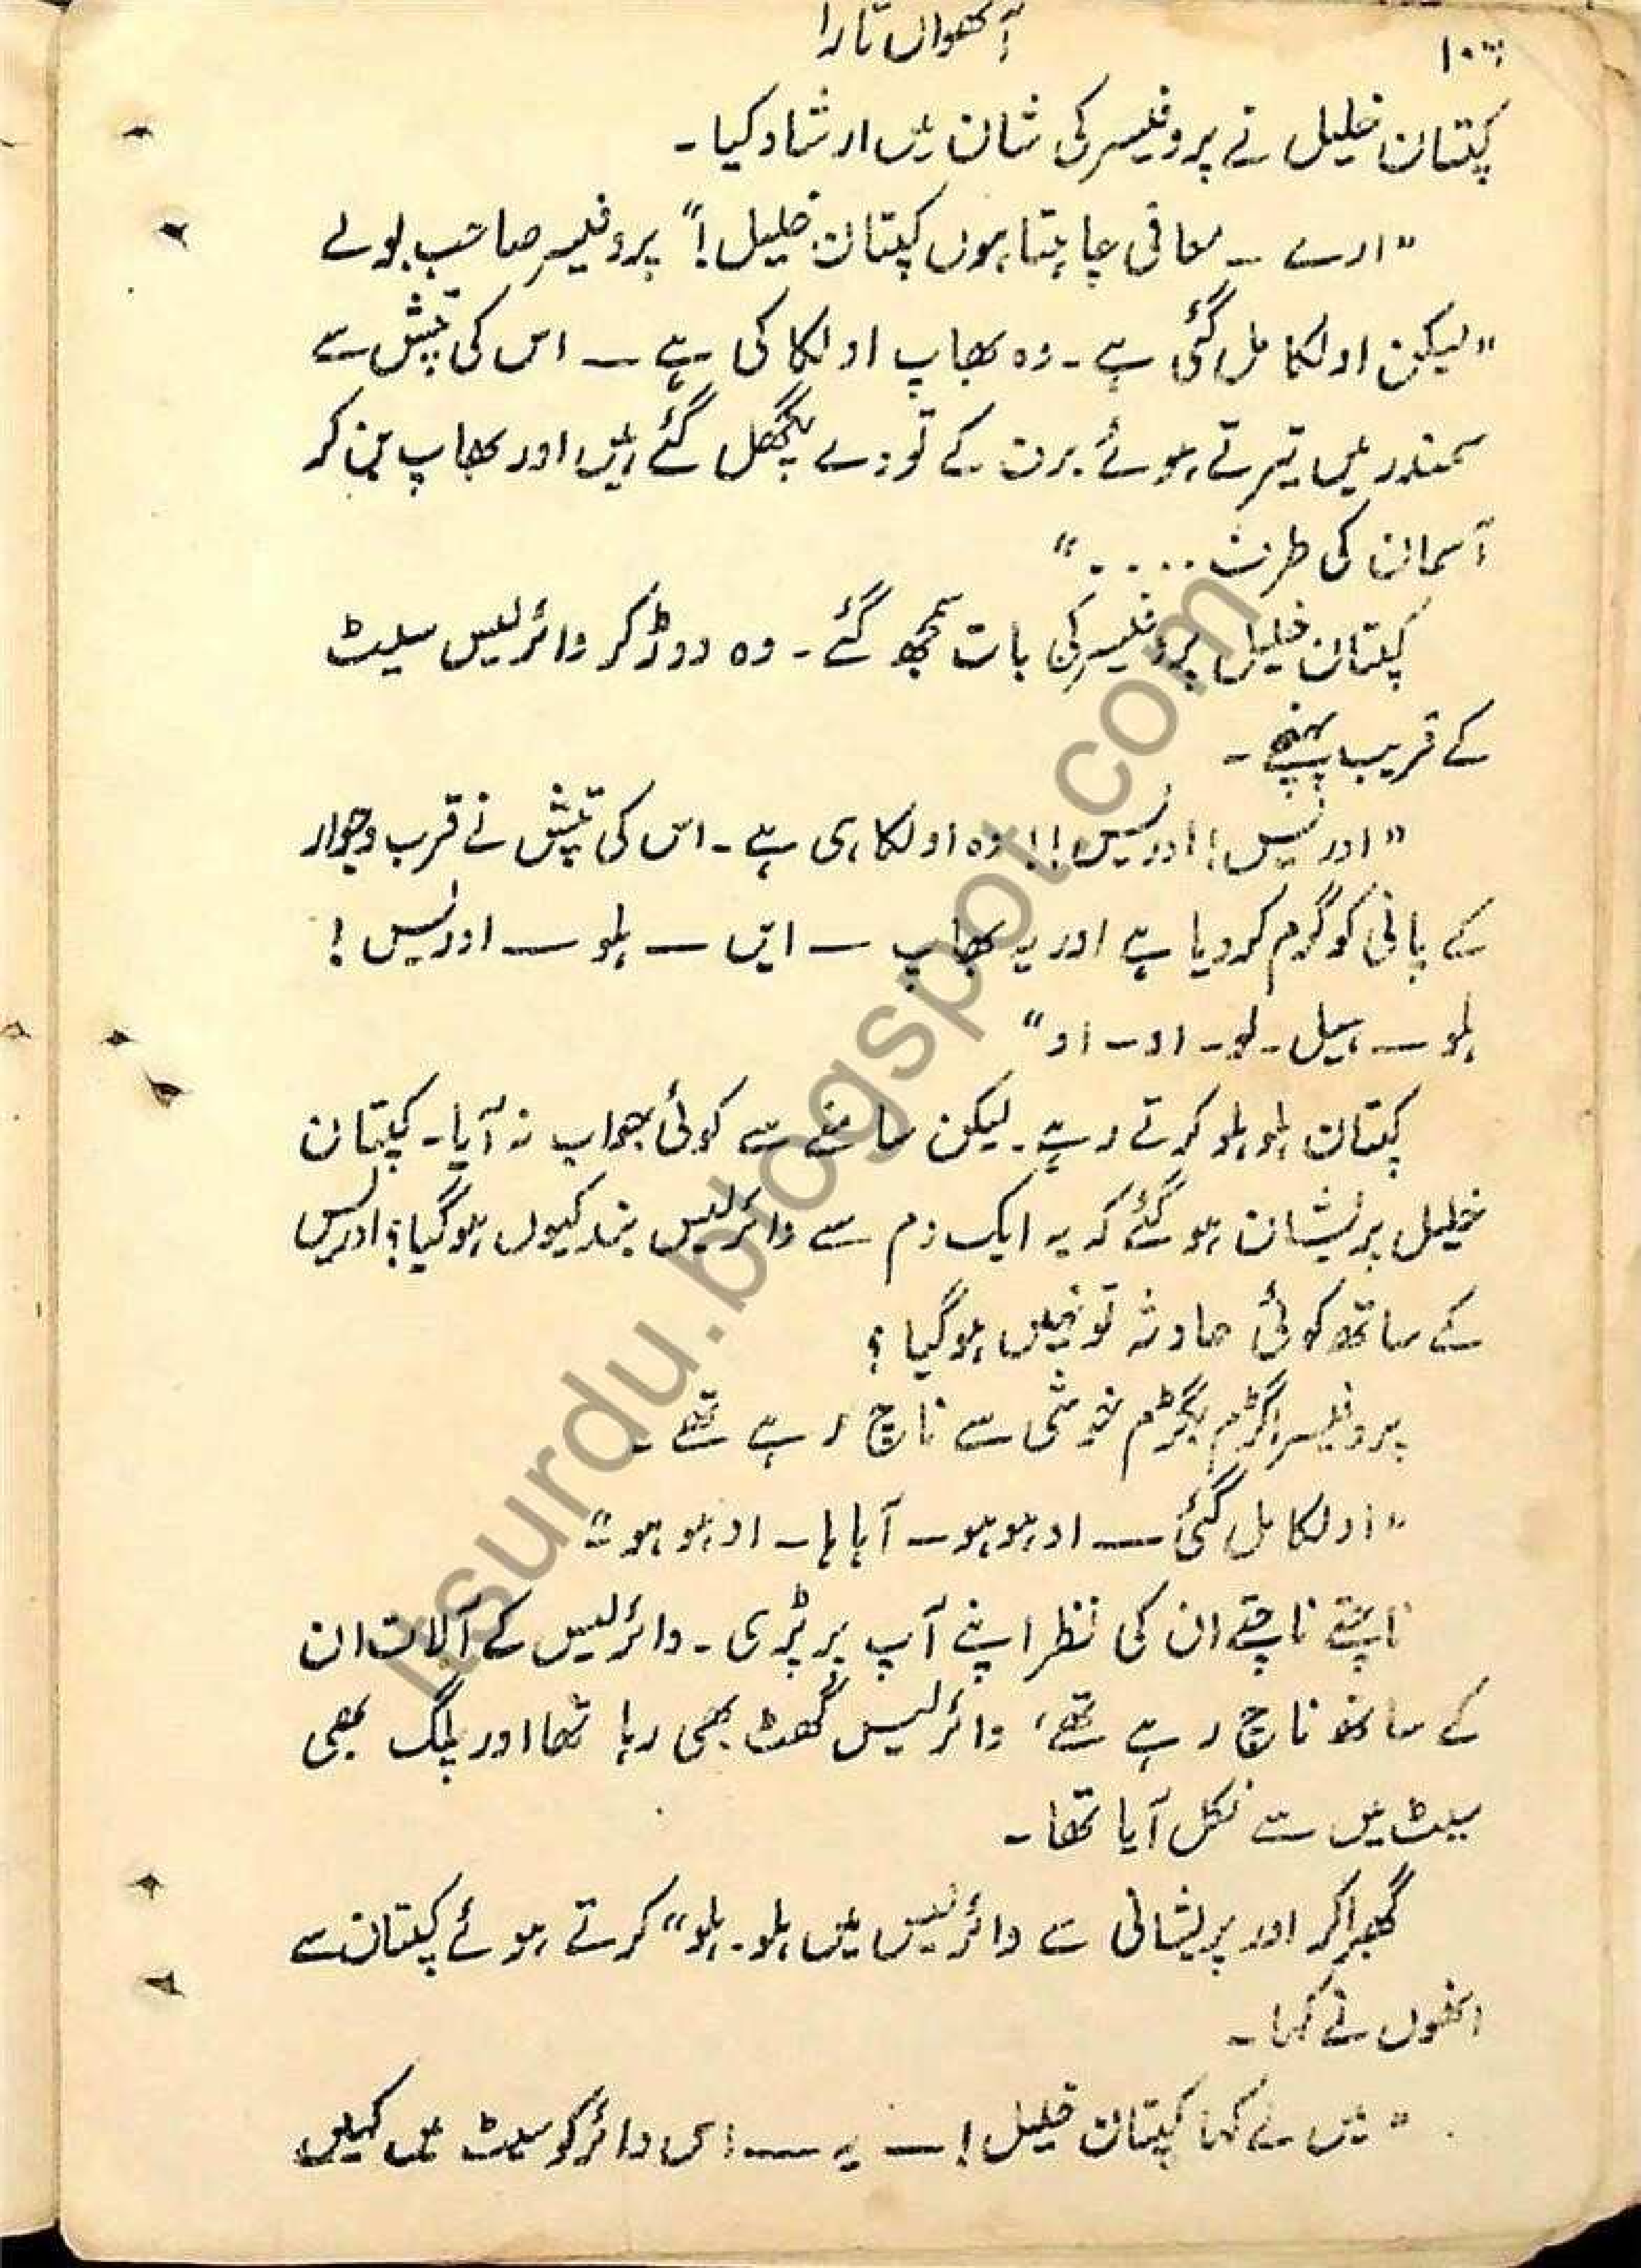 آٹھواں تارا
کپتان خلیل نے پروفیسر کی شان میں ارشاد کیا۔
"ارے ـ معافی چاہتا ہوں کپتان خلیل!" پروفیسر صاحب بولے
"لیکن اولکا مل گئی ہے۔ وہ بھاپ اولکا کی ہے ــ اس کی تپش سے
سمندر میں تیرتے ہوئے برف کے تودے پگھل گئے ہیں اور بھاپ بن کر
آسمان کی طرف ...."
کپتان خلیل پروفیسر کی بات سمجھ گئے۔ وہ دوڑ کر وائرلیس سیٹ
کے قریب پہنچے۔
"ادریس! ادریس!! وہ اولکا ہی ہے۔ اس کی تپش نے قرب و جوار
کے پانی کو گرم کر دیا ہے اور یہ بھاپ ــ ایں ــ ہلو ــ ادریس!
ہلو ــ ہیل۔ لو۔ او۔ او"
کپتان ہلو ہلو کرتے رہے۔ لیکن سامنے سے کوئی جواب نہ آیا۔ کپتان
خلیل پریشان ہو گئے کہ یہ ایک دم سے وائرلیس بند کیوں ہو گیا؟ ادریس
کے ساتھ کوئی حادثہ تو نہیں ہو گیا؟
پروفیسر اگڑم بگڑم خوشی سے ناچ رہے تھے۔
"اولکا مل گئی ــ او ہو ہو ــ آہا ہا ــ او ہو ہو"
ناچتے ناچتے ان کی نظر اپنے آپ پر پڑی۔ وائرلیس کے آلات ان
کے ساتھ ناچ رہے تھے، وائرلیس گھٹ بھی رہا تھا اور پلگ بھی
سیٹ میں سے نکل آیا تھا۔
گھبرا کر اور پریشانی سے وائرلیس میں ہلو۔ ہلو" کرتے ہوئے کپتان سے
انھوں نے کہا۔
"میں نے کہا کپتان خلیل! ــ یہ ــ اس وائر کو سیٹ میں کہیں
itsurdu.blogspot.com